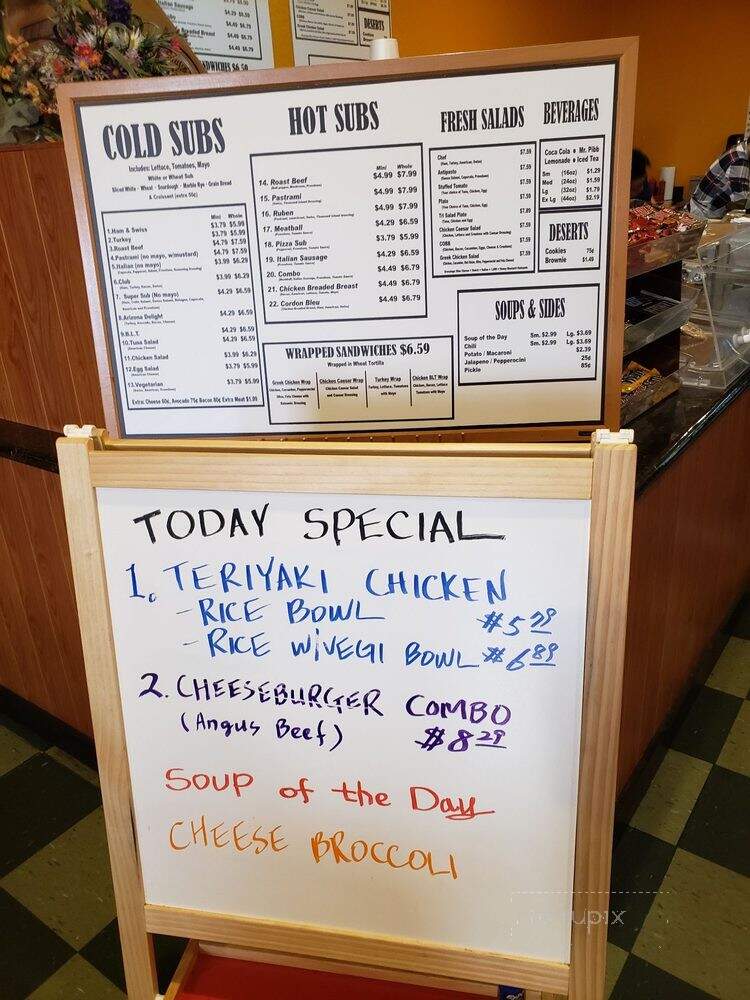 COLD SUBS
Includes: Lettuce, Tomatoes, Mayo
White or Wheat Sub
Sliced White - Wheat - Sourdough - Marble Rye - Grain Bread
& Croissant (extra 50¢)
Mini Whole
1.Ham & Swiss $3.79 $5.99
2.Turkey $3.79 $5.99
3.Roast Beef $4.79 $7.59
4.Pastrami (no mayo, w/mustard) $4.79 $7.59
5.Italian (no mayo) $3.99 $6.29
6.Club $3.99 $6.29
7. Super Sub (No mayo) $4.29 $6.59
8.Arizona Delight $4.29 $6.59
9.B.L.T. $4.29 $6.59
10.Tuna Salad $4.29 $6.59
11.Chicken Salad $3.99 $6.29
12.Egg Salad $3.79 $5.99
13.Vegetarian $3.79 $5.99
Extra: Cheese 60¢, Avocado 75¢ Bacon 80¢ Extra Meat $1.99
HOT SUBS
Mini Whole
14. Roast Beef $4.99 $7.99
15. Pastrami $4.99 $7.99
16. Ruben $4.99 $7.99
17. Meatball $4.29 $6.59
18. Pizza Sub $3.79 $5.99
19. Italian Sausage $4.29 $6.59
20. Combo $4.49 $6.79
21. Chicken Breaded Breast $4.49 $6.79
22. Cordon Bleu $4.49 $6.79
WRAPPED SANDWICHES $6.59
Wrapped in Wheat Tortilla
Greek Chicken Wrap
Chicken Caesar Wrap
Chicken Caesar Salad
and Caesar Dressing
Turkey Wrap
Turkey, Lettuce, Tomatoes
with Mayo
Chicken BLT Wrap
Chicken, Bacon, Lettuce
Tomatoes with Mayo
FRESH SALADS
Chef $7.59
Antipasto $7.59
Stuffed Tomato $7.59
Plate $7.59
Tri Salad Plate $7.89
Chicken Caesar Salad $7.59
COBB $7.59
Greek Chicken Salad $7.59
BEVERAGES
Coca Cola • Mr. Pibb
Lemonade • Iced Tea
Sm (16oz) $1.29
Med (24oz) $1.59
Lg (32oz) $1.79
Ex Lg (44oz) $2.19
DESERTS
Cookies 75¢
Brownie $1.49
SOUPS & SIDES
Soup of the Day Sm. $2.99 Lg. $3.69
Chili Sm. $2.99 Lg. $3.69
Potato / Macaroni $2.39
Jalapeno / Pepperocini 25¢
Pickle 85¢
TODAY SPECIAL
1. TERIYAKI CHICKEN
- RICE BOWL $5.79
- RICE W/VEGI BOWL $6.89
2. CHEESEBURGER COMBO
(Angus Beef) $8.29
SOUP of the Day
CHEESE BROCCOLI